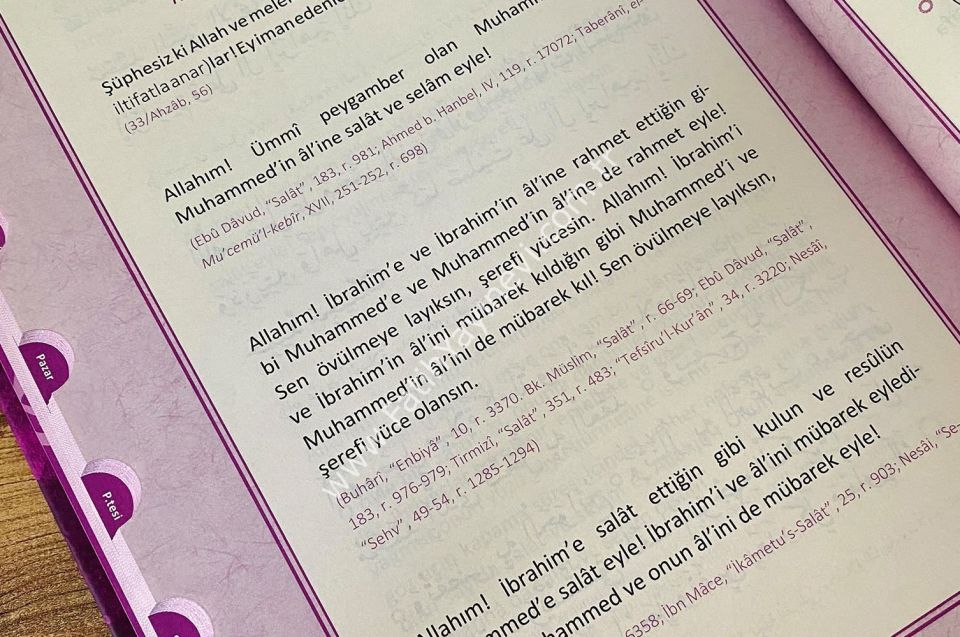 Şüphesiz ki Allah ve melek
iltifatla anar)lar! Ey iman edenle
(33/Ahzâb, 56)
Allahım! Ümmî peygamber olan Muhamm
Muhammed'in âl'ine salât ve selâm eyle!
(Ebû Dâvud, "Salât", 183, r. 981; Ahmed b. Hanbel, IV, 119, r. 17072; Taberânî, el-
Mu'cemü'l-kebîr, XVII, 251-252, r. 698)
Allahım! İbrahim'e ve İbrahim'in âl'ine rahmet ettiğin gi-
bi Muhammed'e ve Muhammed'in âl'ine de rahmet eyle!
Sen övülmeye layıksın, şerefi yücesin. Allahım! İbrahim'i
ve İbrahim'in âl'ini mübarek kıldığın gibi Muhammed'i ve
Muhammed'in âl'ini de mübarek kıl! Sen övülmeye layıksın,
şerefi yüce olansın.
(Buhârî, "Enbiyâ", 10, r. 3370. Bk. Müslim, "Salât", r. 66-69; Ebû Dâvud, "Salât",
183, r. 976-979; Tirmizî, "Salât", 351, r. 483; "Tefsîru'l-Kur'ân", 34, r. 3220; Nesâî,
"Sehv", 49-54, r. 1285-1294)
Allahım! İbrahim'e salât ettiğin gibi kulun ve resûlün
ammed'e salât eyle! İbrahim'i ve âl'ini mübarek eyledi-
hammed ve onun âl'ini de mübarek eyle!
6358; İbn Mâce, "İkâmetu's-Salât", 25, r. 903; Nesâî, "Se-
Pazar
P.tesi